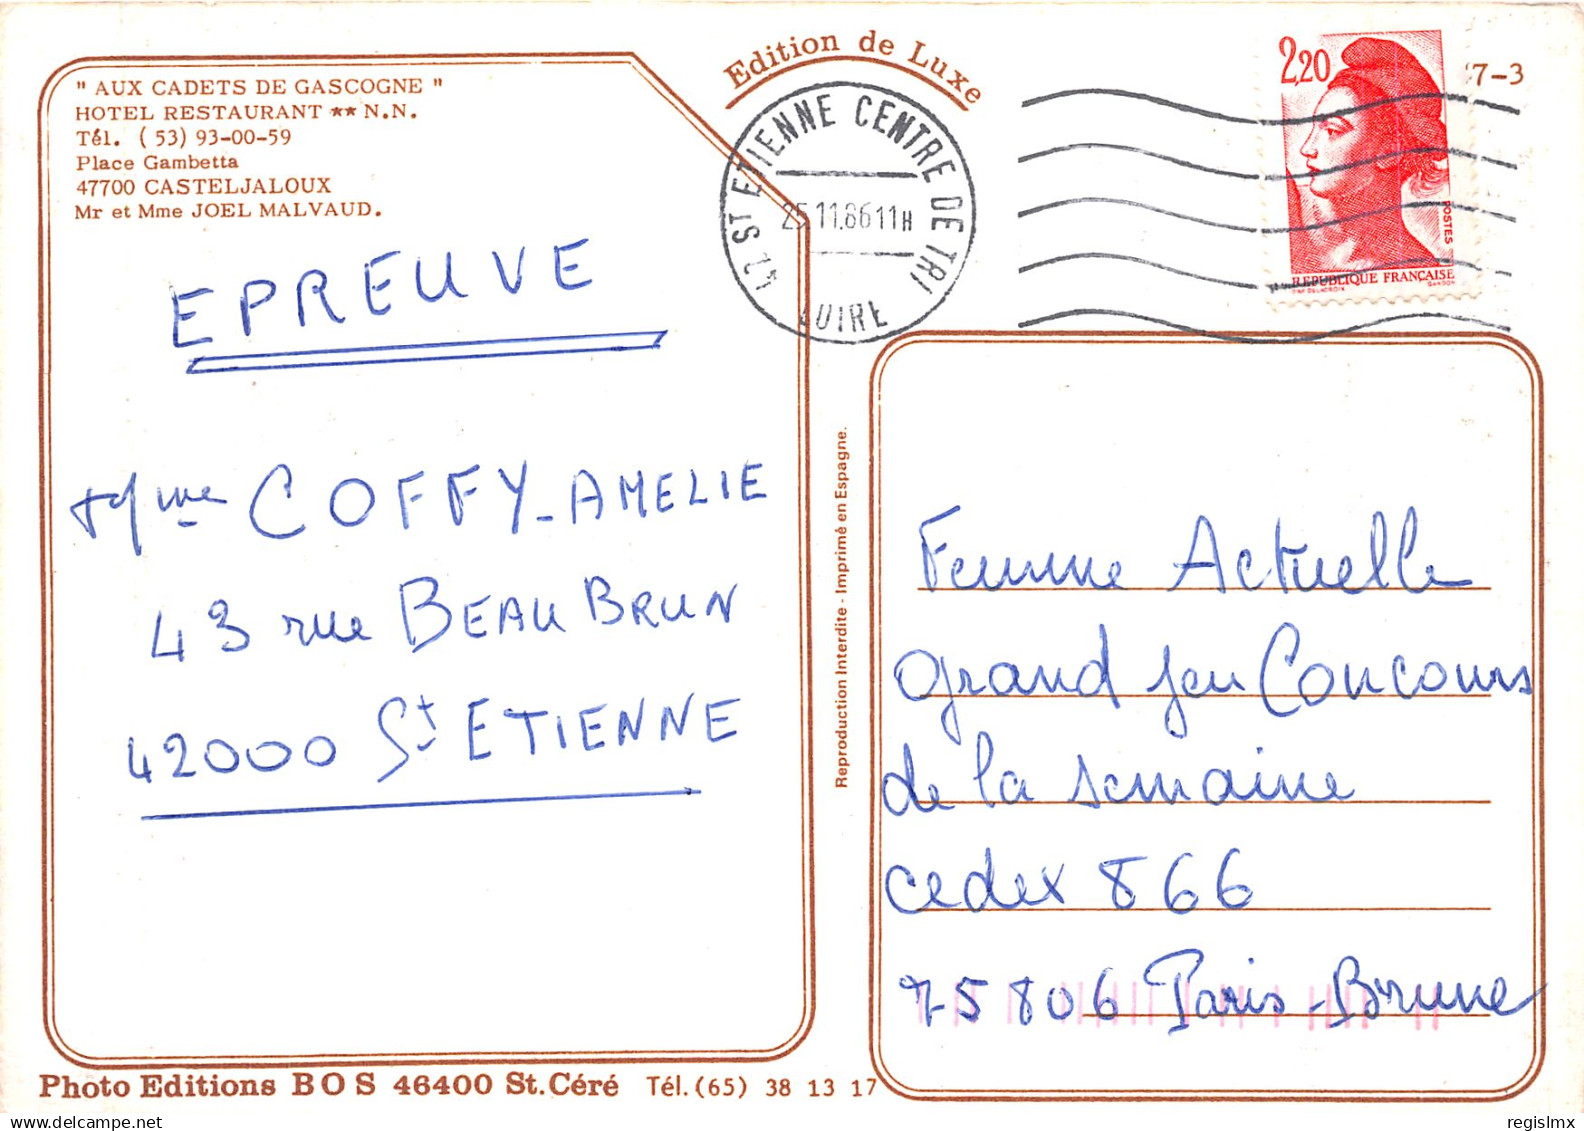 " AUX CADETS DE GASCOGNE "
HOTEL RESTAURANT ** N.N.
Tél. ( 53) 93-00-59
Place Gambetta
47700 CASTELJALOUX
Mr et Mme JOEL MALVAUD.
EPREUVE
Mme COFFY-AMELIE
43 rue BEAUBRUN
42000 St ETIENNE
Edition de Luxe
42 ST ETIENNE CENTRE DE TRI
25.11.86 11H
LOIRE
2,20
POSTES
REPUBLIQUE FRANÇAISE
D'AP. DELACROIX GANDON
7-3
Reproduction Interdite - Imprimé en Espagne.
Femme Actuelle
grand jeu Concours
de la semaine
cedex 866
75806 Paris-Brune
Photo Editions BOS 46400 St.Céré Tél.(65) 38 13 17
regislmx